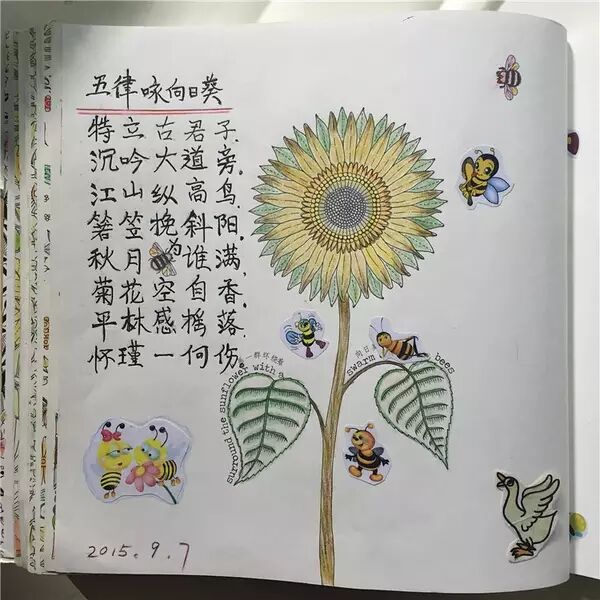 五律 咏向日葵
特立古君子,
沉吟大道旁。
江山纵高鸟,
箬笠挽斜阳。
秋月为谁满,
菊花空自香。
平林感摇落,
怀瑾一何伤。
一群环绕着
向日葵
surround the sunflower with a swarm bees
2015.9.7